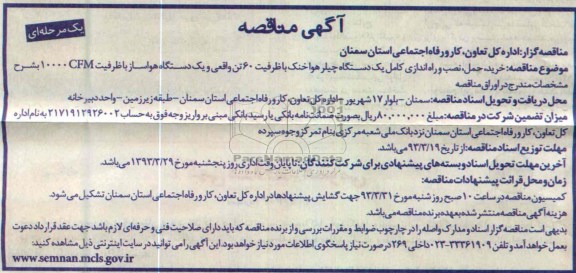 آگهی مناقصه
یک مرحله‌ای
مناقصه گزار: اداره کل تعاون، کار و رفاه اجتماعی استان سمنان
موضوع مناقصه: خرید، حمل، نصب و راه اندازی کامل یک دستگاه چیلر هوا خنک با ظرفیت ۶۰ تن واقعی و یک دستگاه هواساز با ظرفیت CFM ۱۰۰۰۰ بشرح
مشخصات مندرج در اوراق مناقصه
محل دریافت و تحویل اسناد مناقصه: سمنان - بلوار ۱۷ شهریور - اداره کل تعاون، کار و رفاه اجتماعی استان سمنان - طبقه زیرزمین - واحد دبیرخانه
میزان تضمین شرکت در مناقصه: مبلغ ۸۰,۰۰۰,۰۰۰ ریال بصورت ضمانتنامه بانکی یا رسید بانکی مبنی بر واریز وجه فوق به حساب ۲۱۷۱۹۱۲۹۲۶۰۰۲ به نام اداره
کل تعاون، کار و رفاه اجتماعی استان سمنان نزد بانک ملی شعبه مرکزی بنام تمرکز وجوه سپرده
مهلت توزیع اسناد مناقصه: از تاریخ ۹۳/۳/۱۹ می‌باشد.
آخرین مهلت تحویل اسناد و بسته‌های پیشنهادی برای شرکت کنندگان: تا پایان وقت اداری روز پنجشنبه مورخ ۱۳۹۳/۳/۲۹ می‌باشد.
زمان و محل قرائت پیشنهادات مناقصه:
کمیسیون مناقصه در ساعت ۱۰ صبح روز شنبه مورخ ۹۳/۳/۳۱ جهت گشایش پیشنهادها در اداره کل تعاون، کار و رفاه اجتماعی استان سمنان تشکیل می‌شود.
هزینه آگهی مناقصه منتشر شده بعهده برنده مناقصه می‌باشد.
بدیهی است مناقصه گزار اسناد و مدارک واصله را در چارچوب ضوابط و مقررات بررسی و از برنده مناقصه که باید دارای صلاحیت فنی و حرفه‌ای لازم باشد جهت عقد قرارداد دعوت
بعمل خواهد آمد و تلفن ۳۳۳۶۱۹۰۹-۰۲۳ داخلی ۲۶۹ در صورت نیاز پاسخگوی اطلاعات مورد نیاز خواهد بود. این آگهی را می توانید در سایت اینترنتی ذیل مشاهده کنید:
www.semnan.mcls.gov.ir